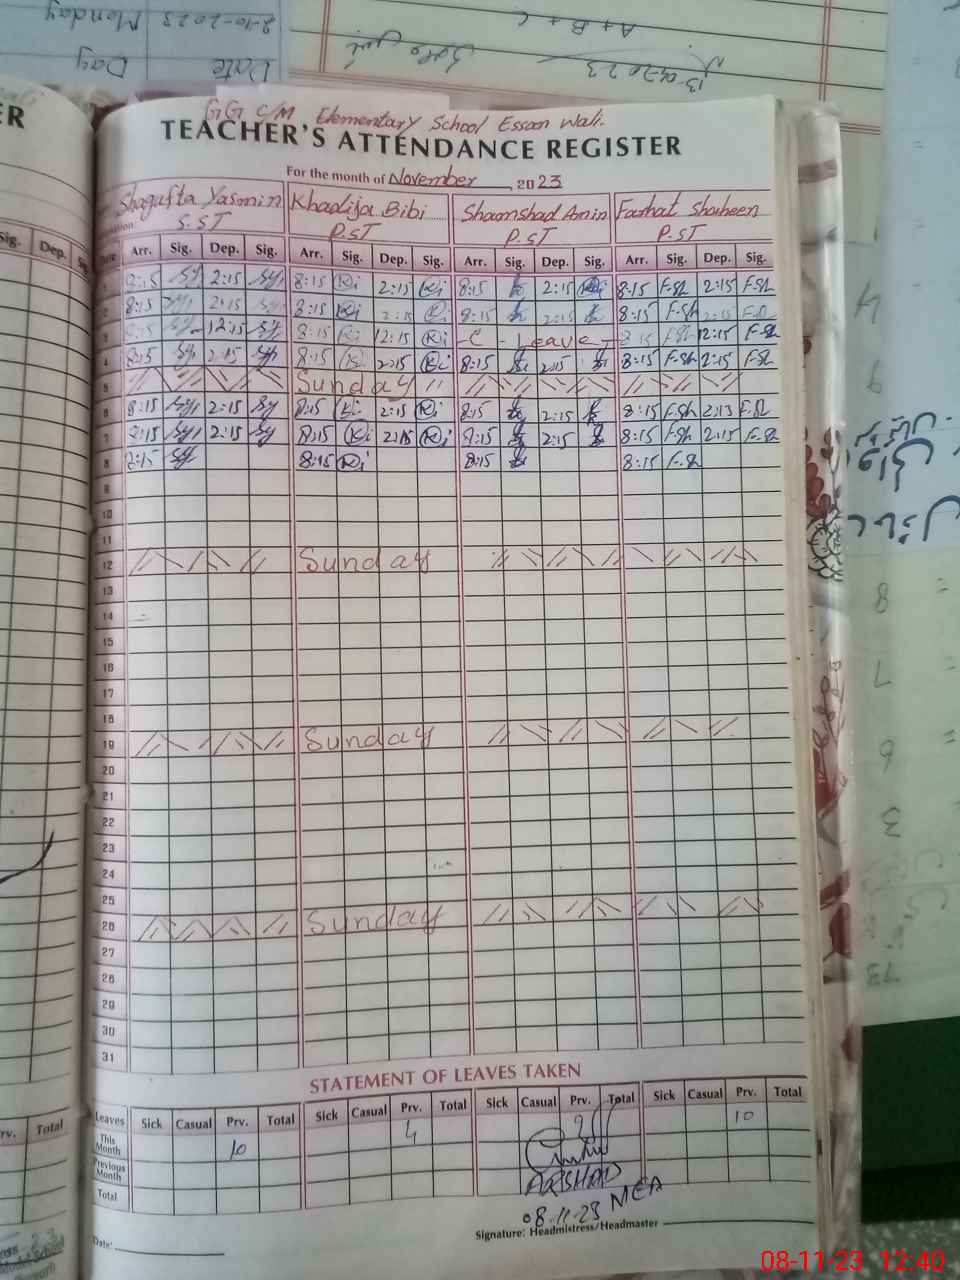 GG C/M Elementary School Essan Wali.
TEACHER'S ATTENDANCE REGISTER
For the month of November, 2023
Shagufta Yasmin Khadija Bibi Shamshad Amin Farhat Shaheen
S.ST P.ST P.ST P.ST
Date Arr. Sig. Dep. Sig. Arr. Sig. Dep. Sig. Arr. Sig. Dep. Sig. Arr. Sig. Dep. Sig.
1 8:15 Sy 2:15 Sy 8:15 Ki 2:15 Ki 8:15 2:15 8:15 F.Sh 2:15 F.Sh
2 8:15 Sy 2:15 Sy 8:15 Ki 2:15 Ki 8:15 2:15 8:15 F.Sh 2:15 F.Sh
3 8:15 Sy 12:15 Sy 8:15 Ki 12:15 Ki - C - Leave - 8:15 F.Sh 12:15 F.Sh
4 8:15 Sy 2:15 Sy 8:15 Ki 2:15 Ki 8:15 2:15 8:15 F.Sh 2:15 F.Sh
5 Sunday
6 8:15 Sy 2:15 Sy 8:15 Ki 2:15 Ki 8:15 2:15 8:15 F.Sh 2:15 F.Sh
7 8:15 Sy 2:15 Sy 8:15 Ki 2:15 Ki 8:15 2:15 8:15 F.Sh 2:15 F.Sh
8 8:15 Sy 8:15 Ki 8:15 8:15 F.Sh
9
10
11
12 Sunday
13
14
15
16
17
18
19 Sunday
20
21
22
23
24
25
26 Sunday
27
28
29
30
31
STATEMENT OF LEAVES TAKEN
Leaves Sick Casual Prv. Total Sick Casual Prv. Total Sick Casual Prv. Total Sick Casual Prv. Total
This Month 10 4 9 10
Previous Month
Total
ARSHAD
08-11-23 MEA
Signature: Headmistress/Headmaster
Date:
08-11-23 12:40
ER
Sig. Dep.
Prv. Total
Date Day
2-10-2023 Monday
A + B + C